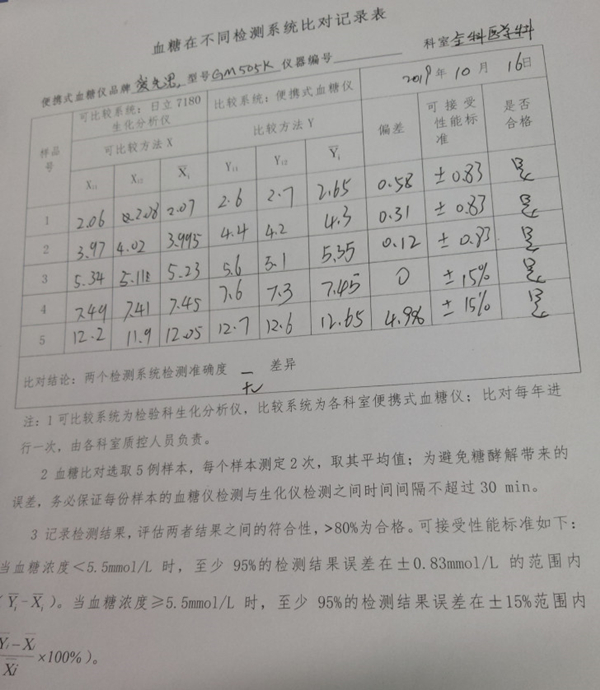 血糖在不同检测系统比对记录表
便携式血糖仪品牌 型号GM505K 仪器编号 科室全科医学科
样品号 可比较系统：日立7180生化分析仪 比较系统：便携式血糖仪 2019年10月16日
可比较方法 X 比较方法 Y 偏差 可接受性能标准 是否合格
Xi1 Xi2 X̄i Yi1 Yi2 Ȳi
1 2.06 2.08 2.07 2.6 2.7 2.65 0.58 ±0.83 是
2 3.97 4.02 3.995 4.4 4.2 4.3 0.31 ±0.83 是
3 5.34 5.118 5.23 5.6 5.1 5.35 0.12 ±0.83 是
4 7.49 7.41 7.45 7.6 7.3 7.45 0 ±15% 是
5 12.2 11.9 12.05 12.7 12.6 12.65 4.9% ±15% 是
比对结论：两个检测系统检测准确度 无 差异
注：1 可比较系统为检验科生化分析仪，比较系统为各科室便携式血糖仪；比对每年进
行一次，由各科室质控人员负责。
2 血糖比对选取5例样本，每个样本测定2次，取其平均值；为避免糖酵解带来的
误差，务必保证每份样本的血糖仪检测与生化仪检测之间时间间隔不超过30 min。
3 记录检测结果，评估两者结果之间的符合性，>80%为合格。可接受性能标准如下：
当血糖浓度＜5.5mmol/L 时，至少 95%的检测结果误差在±0.83mmol/L 的范围内
(Ȳi-X̄i)。当血糖浓度≥5.5mmol/L 时，至少 95%的检测结果误差在±15%范围内
Ȳi-X̄i/X̄i×100%)。